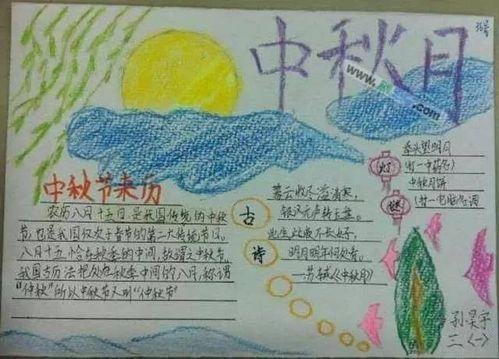 中秋月
www. .com
中秋节来历
农历八月十五日是我国传统的中秋
节,也是我国仅次于春节的第二大传统节日。
八月十五恰在秋季的中间,故谓之中秋节。
我国古历法把处在秋季中间的八月,称谓
“仲秋”所以中秋节又叫“仲秋节”
古
诗
暮云收尽溢清寒,
银汉无声转玉盘。
此生此夜不长好,
明月明年何处看。
——苏轼《中秋月》
灯
谜
举头望明月
(打一中药名)
中秋月饼
(打一电脑名词
三〈一〉